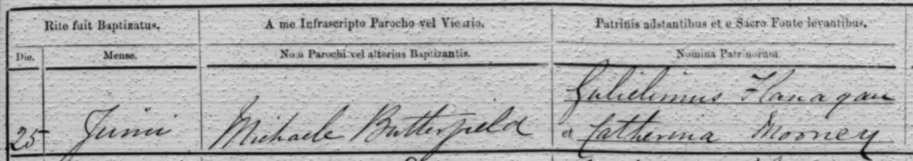 Rite fuit Baptizatus.
A me Infrascripto Parocho vel Vicario.
Patrinis adstantibus et e Sacro Fonte levantibus.
Die.
Mense.
Nomen Parochi vel alterius Baptizantis.
Nomina Patrinorum
25
Junii
Michaele Butterfield
Gulielimus Flanagan
a Catherina Mooney